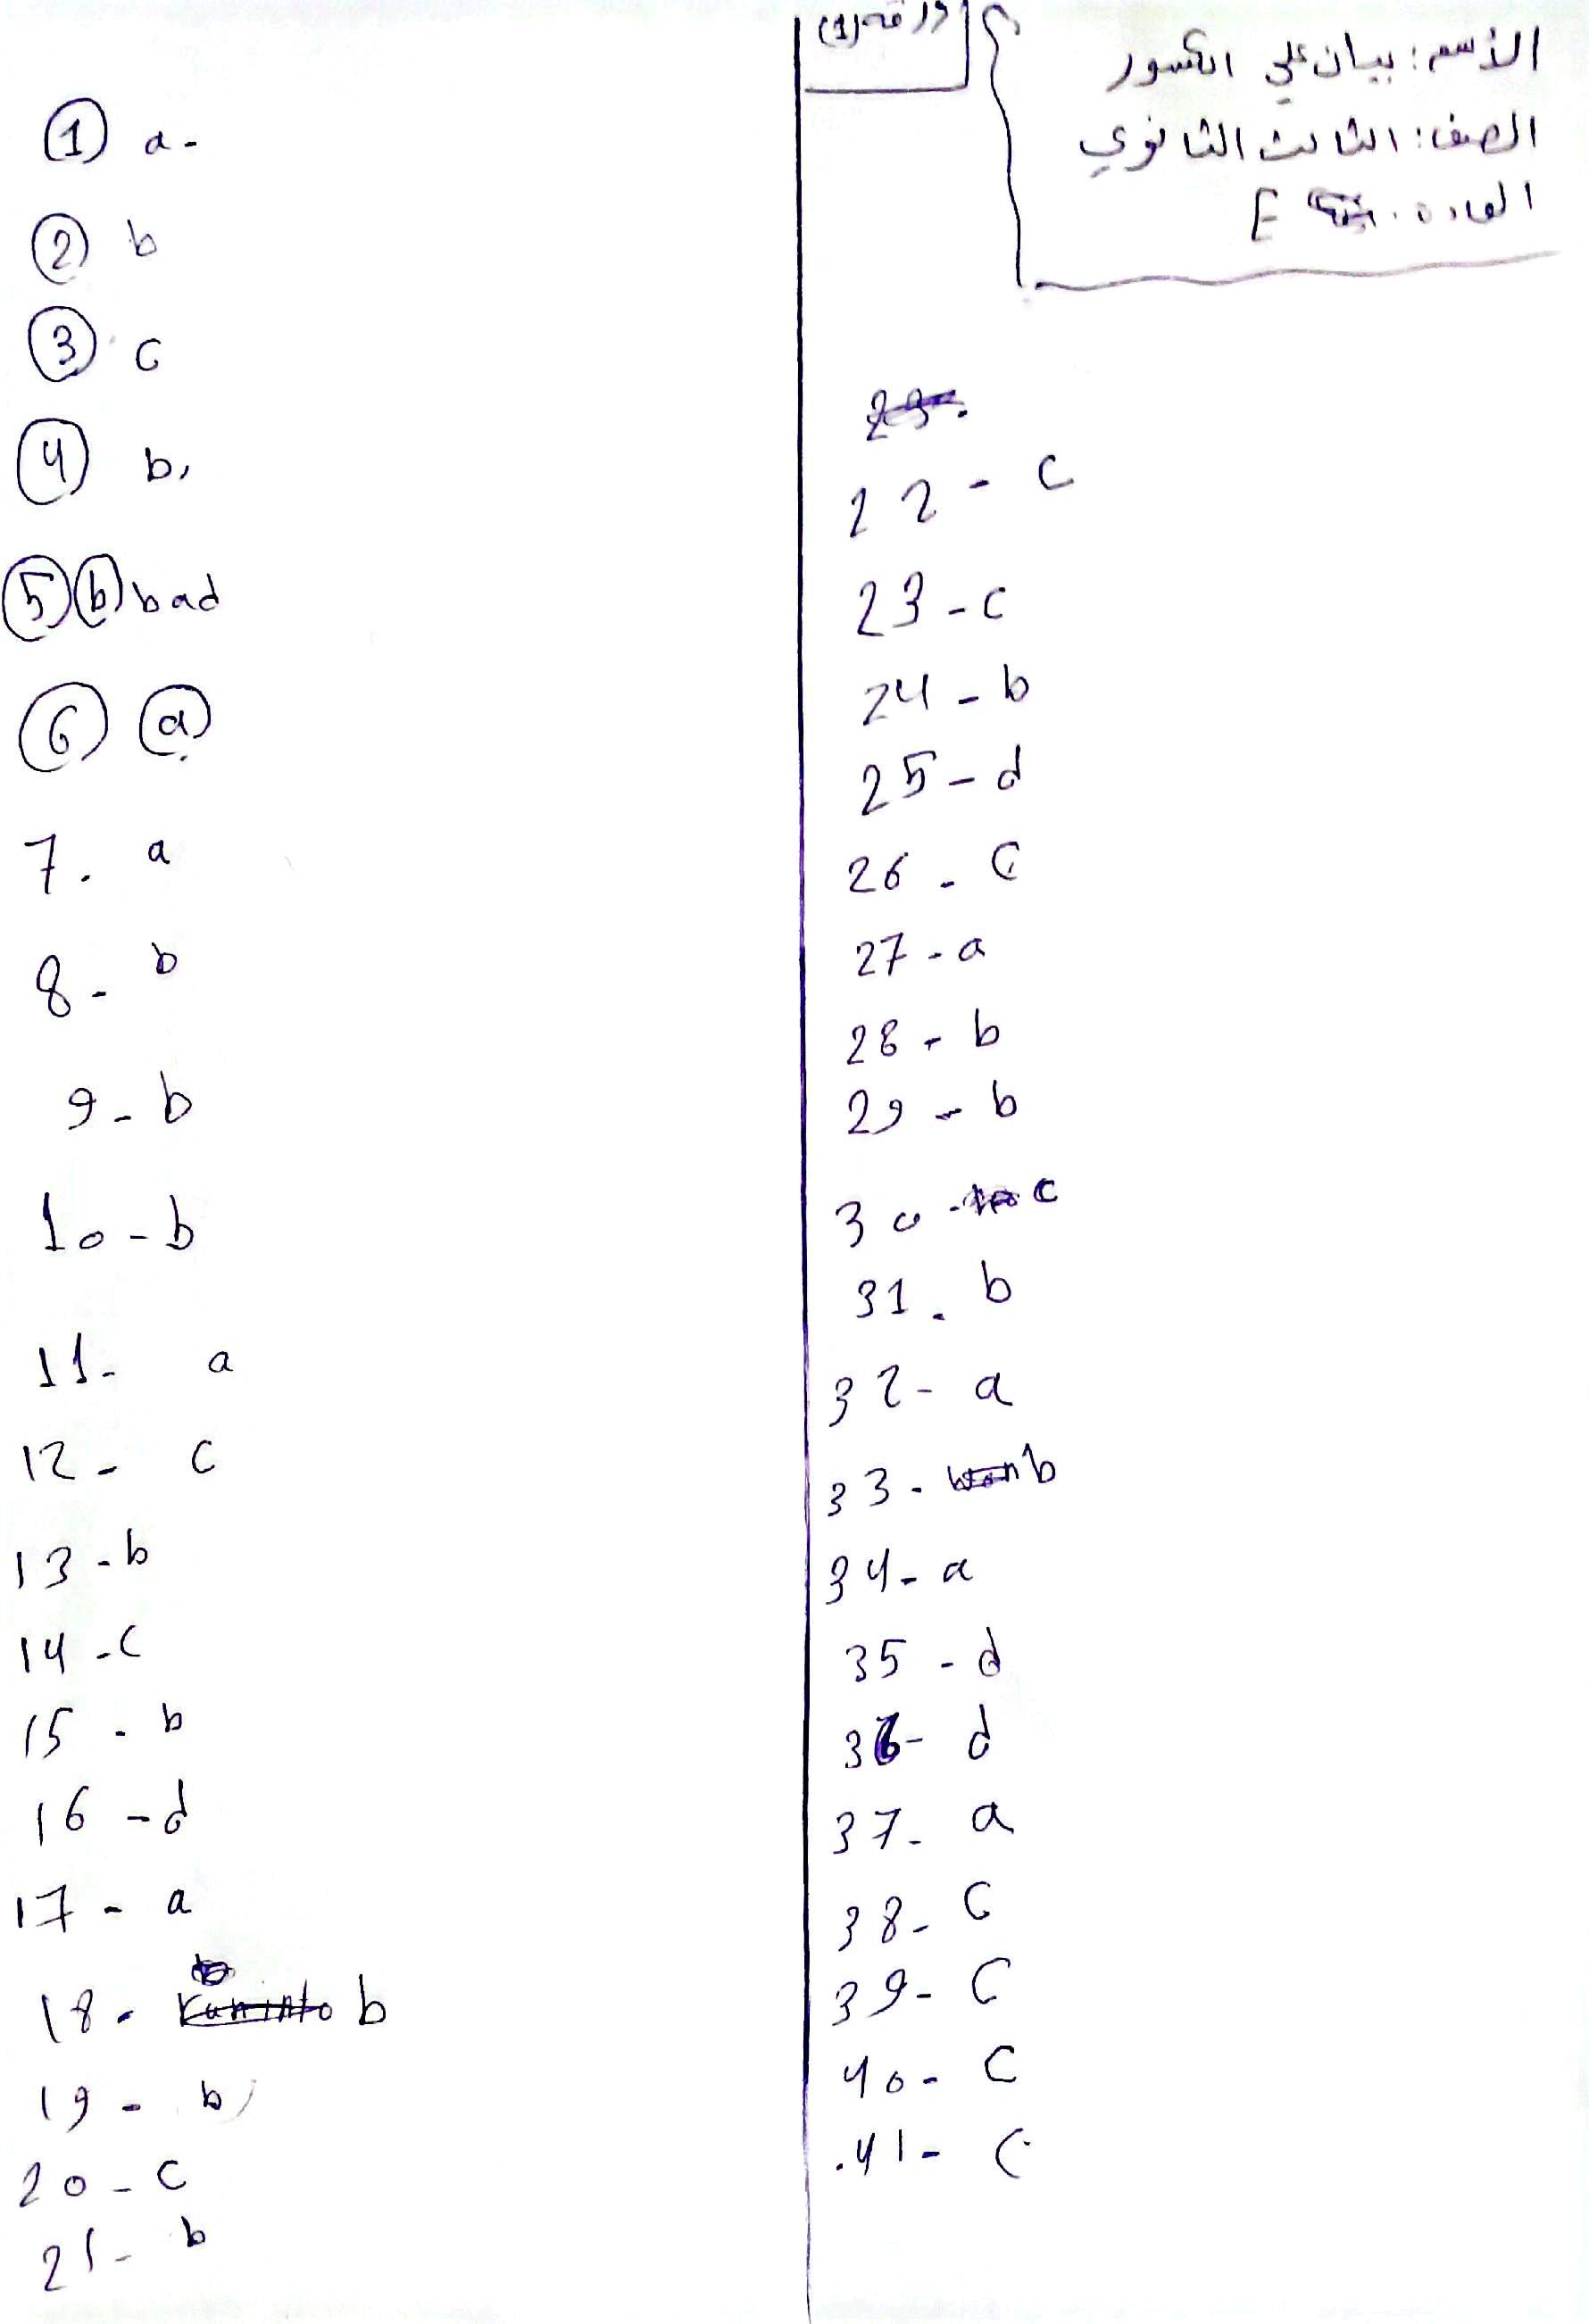 ورقة (1)
الأسم: بيان علي الكسور
الصف: الثالث الثانوي
المادة: E
1 a-
2 b
3 c
4 b,
5 b bad
6 a
7. a
8- b
9- b
10- b
11- a
12- c
13-b
14-c
15- b
16-d
17- a
18- b
19- b
20-c
21- b
22-c
23-c
24-b
25-d
26-c
27-a
28-b
29-b
30-c
31. b
32-a
33-b
34-a
35-d
36-d
37-a
38-c
39-c
40-c
41-c